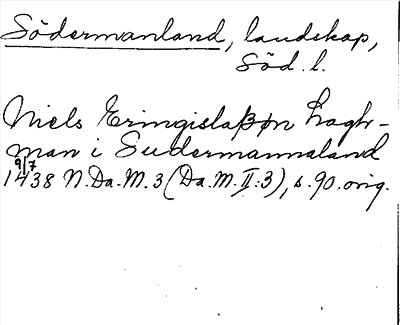 Södermanland, landskap,
Söd. l.
Niels Eringislaßøn laghr-
man i Sudermannaland
9/7
1438 N.Da.M.3 (Da.M.II:3), s.90. orig.